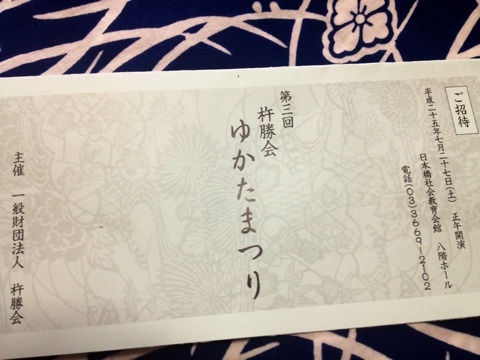 ご招待
平成二十五年七月二十七日(土) 正午開演
日本橋社会教育会館 八階ホール
電話(03)3669-2102
第三回
杵勝会
ゆかたまつり
主催 一般財団法人 杵勝会